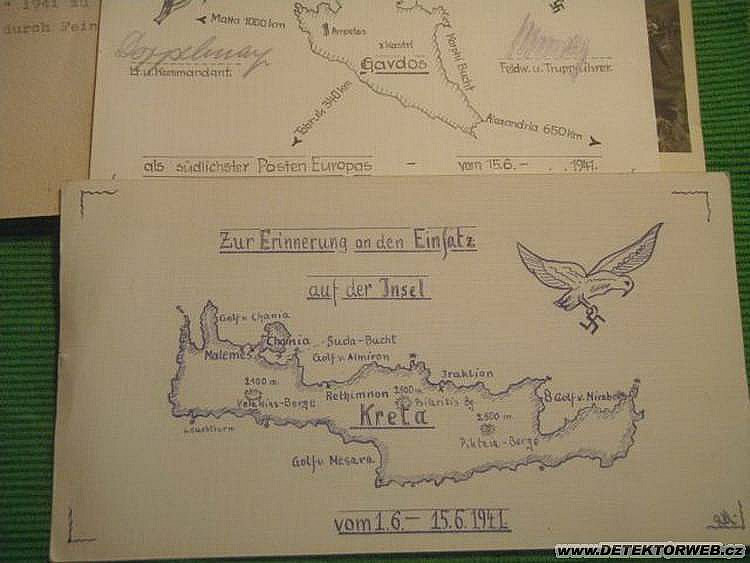 1941 zu
durch Fein
Malta 1000 km
Ampelos
x Kastri
Gavdos
Korphi Bucht
Doppelmay
Lt. u. Kommandant.
Feldw. u. Truppführer
Tobruk 340 km
Alexandria 650 km
als südlichster Posten Europas – vom 15.6. – . . 1941.
Zur Erinnerung an den Einsatz
auf der Insel
Golf v. Chania
Chania
Suda-Bucht
Malemes
Golf v. Almiron
Iraklion
2400 m
Rethimnon
2500 m
Golf v. Mirabe
Kreta
2500 m
Leuchtturm
Golf v. Mesara
vom 1.6. – 15.6.1941.
www.DETEKTORWEB.cz